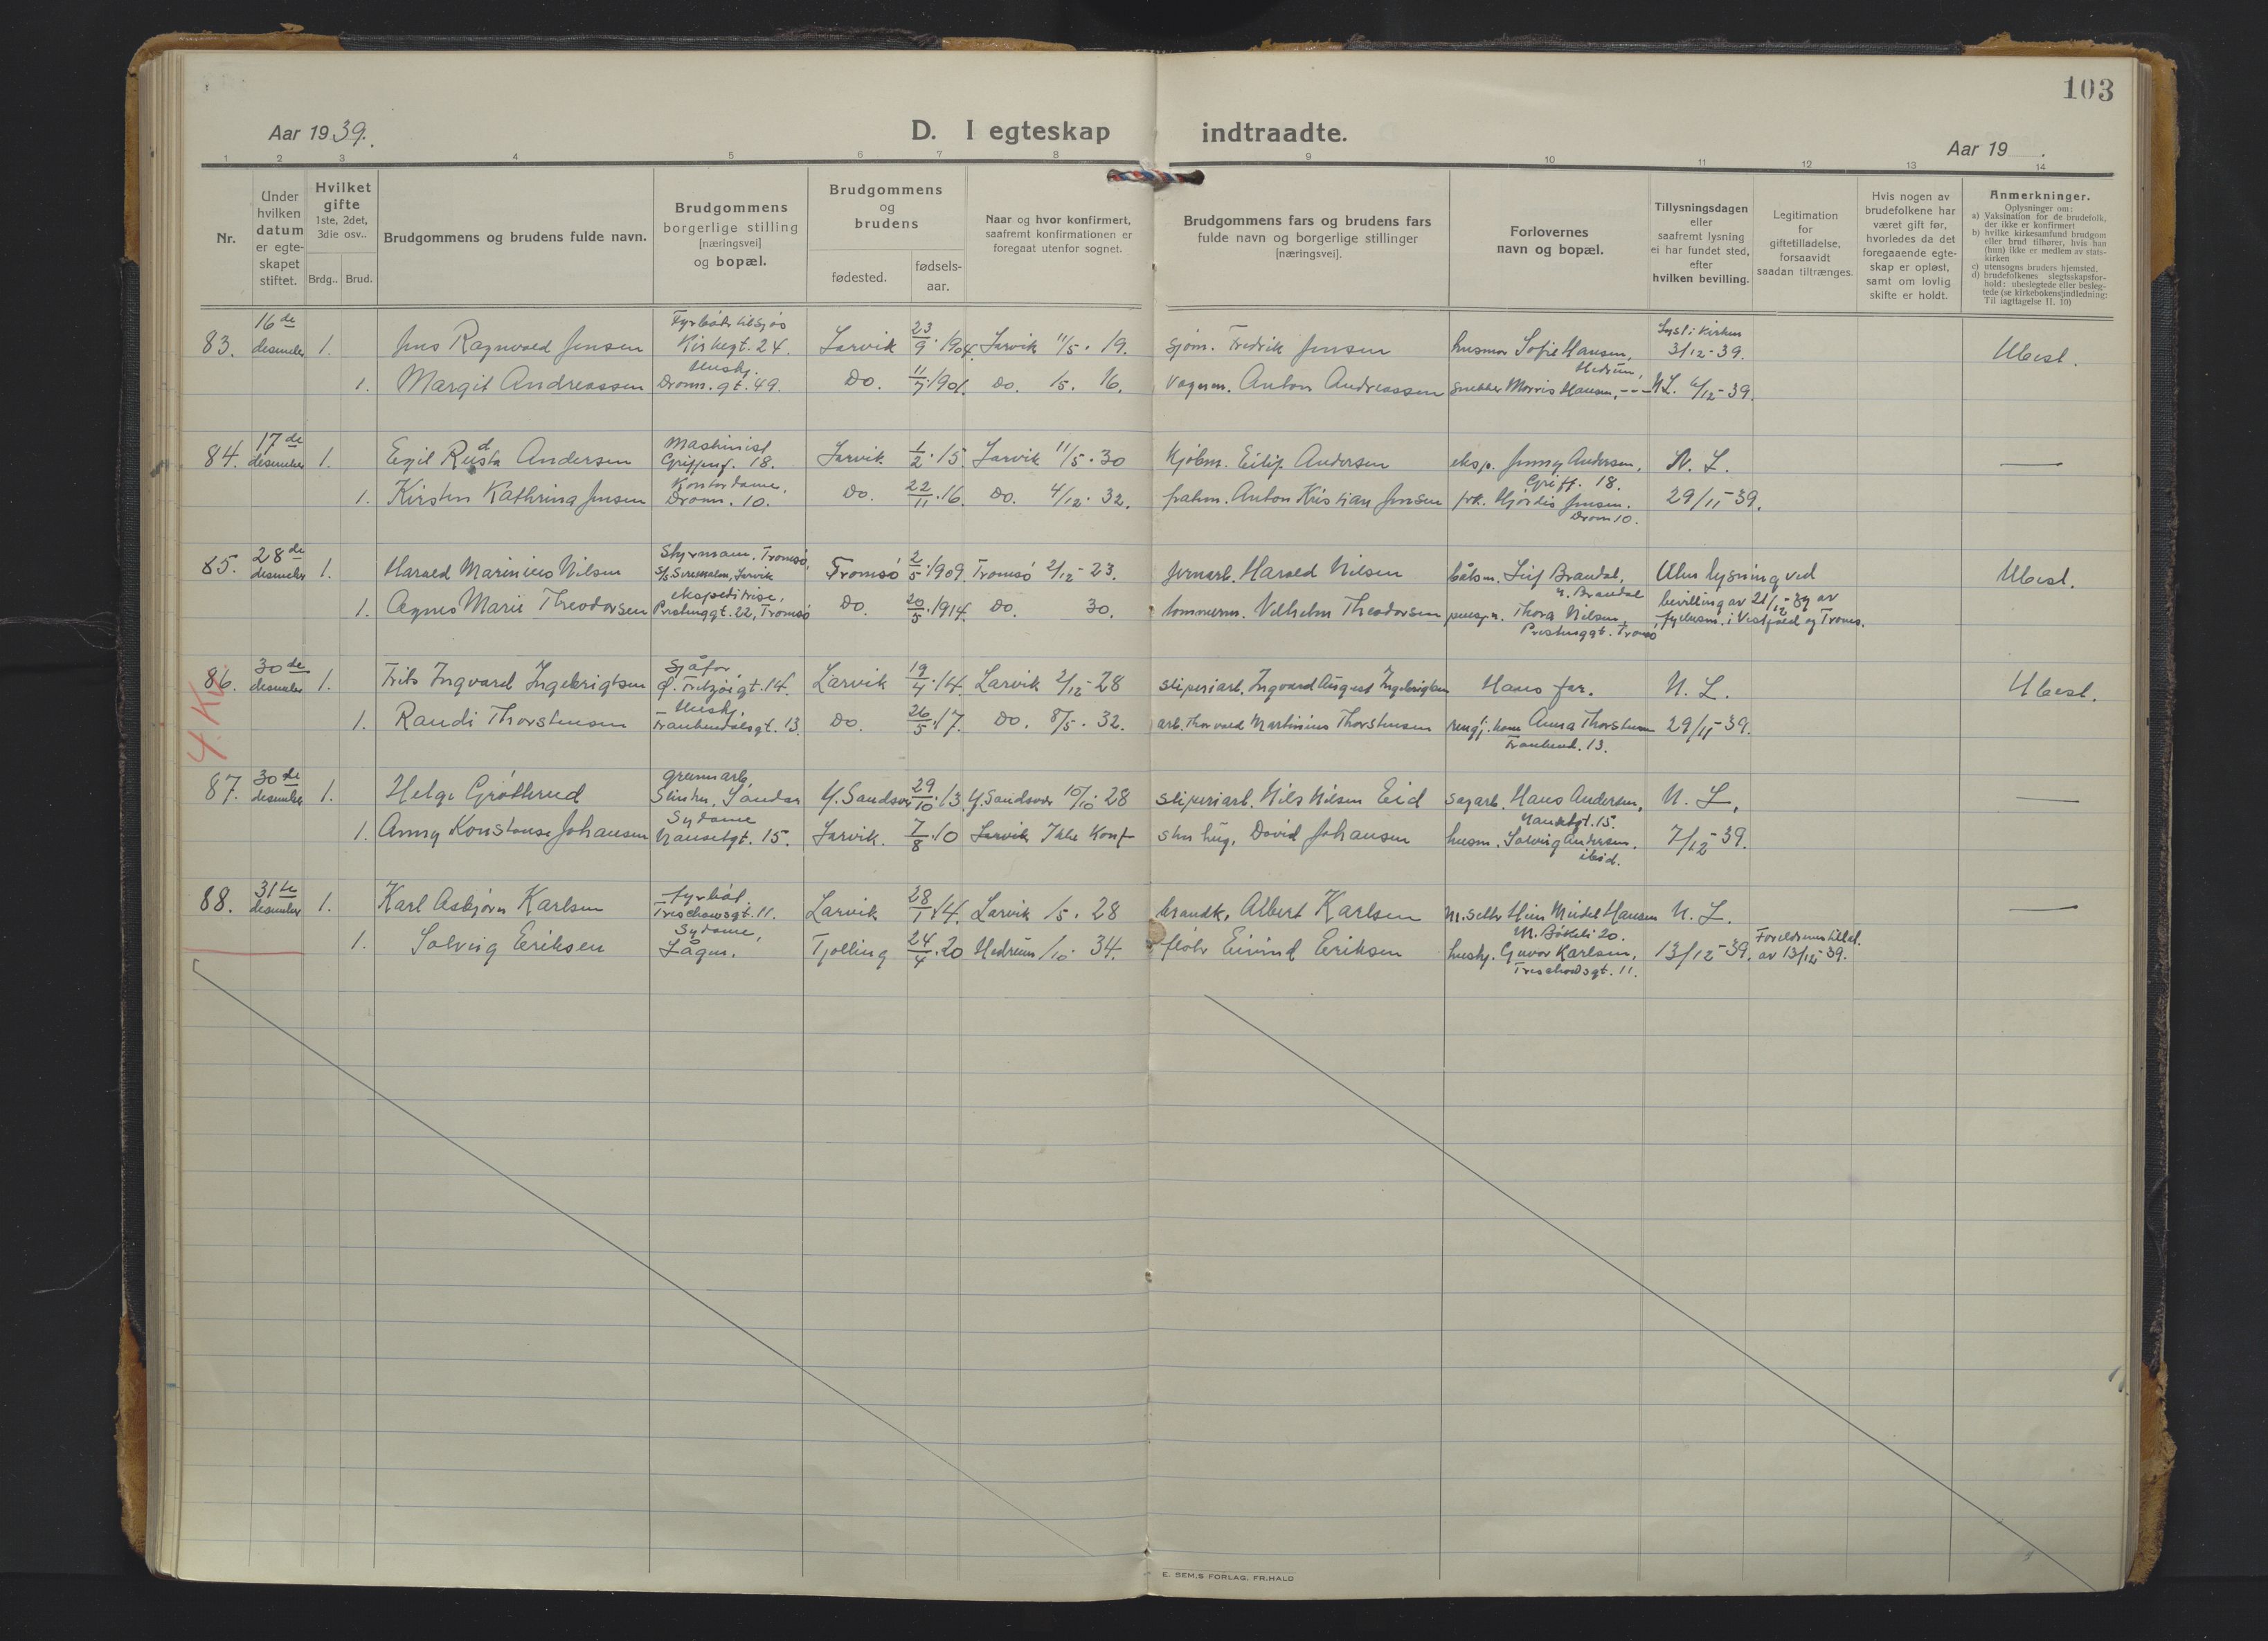 103
Aar 1939.
D. I egteskap indtraadte.
Aar 19 .
1 2 3 4 5 6 7 8 9 10 11 12 13 14
Nr.
Under
hvilken
datum
er egte-
skapet
stiftet.
Hvilket
gifte
1ste, 2det,
3die osv..
Brdg.. Brud.
Brudgommens og brudens fulde navn.
Brudgommens
borgerlige stilling
[næringsvei]
og bopæl.
Brudgommens
og
brudens
fødested.
fødsels-
aar.
Naar og hvor konfirmert,
saafremt konfirmationen er
foregaat utenfor sognet.
Brudgommens fars og brudens fars
fulde navn og borgerlige stillinger
[næringsvei].
Forlovernes
navn og bopæl.
Tillysningsdagen
eller
saafremt lysning
ei har fundet sted,
efter
hvilken bevilling.
Legitimation
for
giftetilladelse,
forsaavidt
saadan tiltrænges.
Hvis nogen av
brudefolkene har
været gift før,
hvorledes da det
foregaaende egte-
skap er opløst,
samt om lovlig
skifte er holdt.
Anmerkninger.
Oplysninger om:
a) Vaksination for de brudefolk,
der ikke er konfirmert
b) hvilke kirkesamfund brudgom
eller brud tilhører, hvis han
(hun) ikke er medlem av stats-
kirken
c) utensogns bruders hjemsted.
d) brudefolkenes slegtsskapsfor-
hold: ubeslegtede eller besleg-
tede (se kirkebokens indledning:
Til iagttagelse II. 10)
16de Fyrbøter tilsjøs Lyst i kirken
83. desember 1. Jens Ragnvald Jensen Kirkegt. 24. Larvik 23/9.1904. Larvik 11/5. 19. Sjøm. Fredrik Jensen husmor Sofie Hansen, 3/12-39. Ubesl.
Huskj. Hedrum,
1. Margit Andreassen Dronn.gt. 49. Do. 11/7.1901. Do. /5. 16. Vognm. Anton Andreassen snekker Morris Hansen, --- N.L. 6/12-39.
17de Maskinist
84. desember 1. Egil Rusta Andersen Griffenf. 18. Larvik 1/2.15. Larvik 11/5.30 Kjøbm. Eilif Andersen eksp. Jenny Andersen, N. L. —
Kontordame, Griff. 18.
1. Kirsten Kathrina Jensen Dronn. 10. Do. 22/11.16. Do. 4/12. 32. Anton Kristian Jensen frk. Hjørdis Jensen. 29/11-39.
Dronn 10.
28de Styrmann. Tromsø,
85. desember 1. Harald Marinius Nilsen Larvik Tromsø 2/5.1909 Tromsø 2/12-23. jernarb. Harald Nilsen båtsm. Leif Brandal, Uten lysning ved Ubesl.
ekspeditrise, Brandal
1. Agnes Marie Theodorsen Prestenggt. 22, Tromsø Do. 20/5.1914. Do. 30. tømmerm. Vilhelm Theodorsen Thora Nilsen, bevilling av 21/12-39 av
Prestenggt. Tromsø fylkesm. i Vestfold og Troms.
30de Sjåfør
86. desember 1. Frits Ingvard Ingebrigtsen Ø. Fritzøigt. 14. Larvik 19/4.14. Larvik 2/12-28 sliperiarb. Ingvard August Ingebrigtsen Hans far. N. L. Ubesl.
4. Kv.
Huskj.
1. Randi Thorstensen Trankendalsgt. 13. Do. 26/5.17. Do. 8/5. 32. arb. Thorvald Martinius Thorstensen Anna Thorstensen 29/11-39.
13.
30de grunnarb.
87. desember 1. Helge Grøtterud Sandar Y. Sandsvær 29/10.13. Y. Sandsvær 10/10-28 sliperiarb. Nils Nilsen Eid sagarb. Hans Andersen, N. L, —
Sydame Nansetgt. 15.
1. Anny Konstanse Johansen Nansetgt. 15. Larvik. 7/8.10 Larvik Ikke Konf stenhug. David Johansen husm. Solveig Andersen, 7/12-39.
ibid.
31te Fyrbøt.
88. desember 1. Karl Asbjørn Karlsen Treschowsgt. 11. Larvik 28/1.14. Larvik /5. 28 brandk. Albert Karlsen Hansen N. L. —
Sydame, M. Bøkeli 20.
1. Solveig Eriksen Lågen. Tjølling 24/4.20 Hedrum /10. 34. fløter Eivind Eriksen huskj. Gunvor Karlsen, 13/12-39. Foreldrenes tillat.
Treschowsgt. 11. av 13/12-39.
E. SEM,S FORLAG, FR.HALD